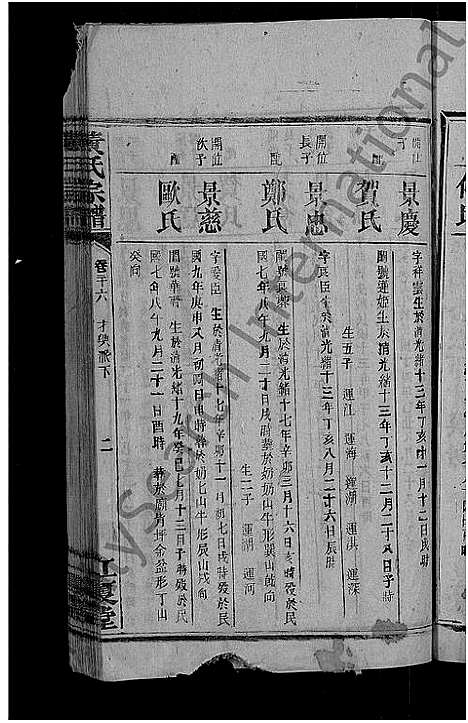 開仕
子
景慶
字祥雲生於清光緒十三年丁亥十一月十二日戌時
配
賀氏
閨號蓮姬生於清光緒十三年丁亥十二月二十八日子時
生五子 運江 運海 運湖 運洪 運深
開位
長子
景忠
字良臣生於清光緒十三年丁亥八月二十六日辰時
配
鄭氏
閨號 生於清光緒十七年辛卯三月十六日亥時歿於民
國七年八年九月二十日戌時葬於奶奶山牛形巽山乾向
生二子 運湖 運河
開位
次子
景慈
字愛臣 生於清光緒十七年辛卯十一月初七日戌時歿於民
國九年庚申又月初四日申時葬於奶山牛形辰山戌向
配
歐氏
閨號華 生於清光緒十九年癸巳七月十三日子時歿於民
國七年八年九月二十一日酉時 葬於廟背坪金盆形丁山
癸向
黃氏宗譜
卷二十六 才奕派下
二
江夏堂
International